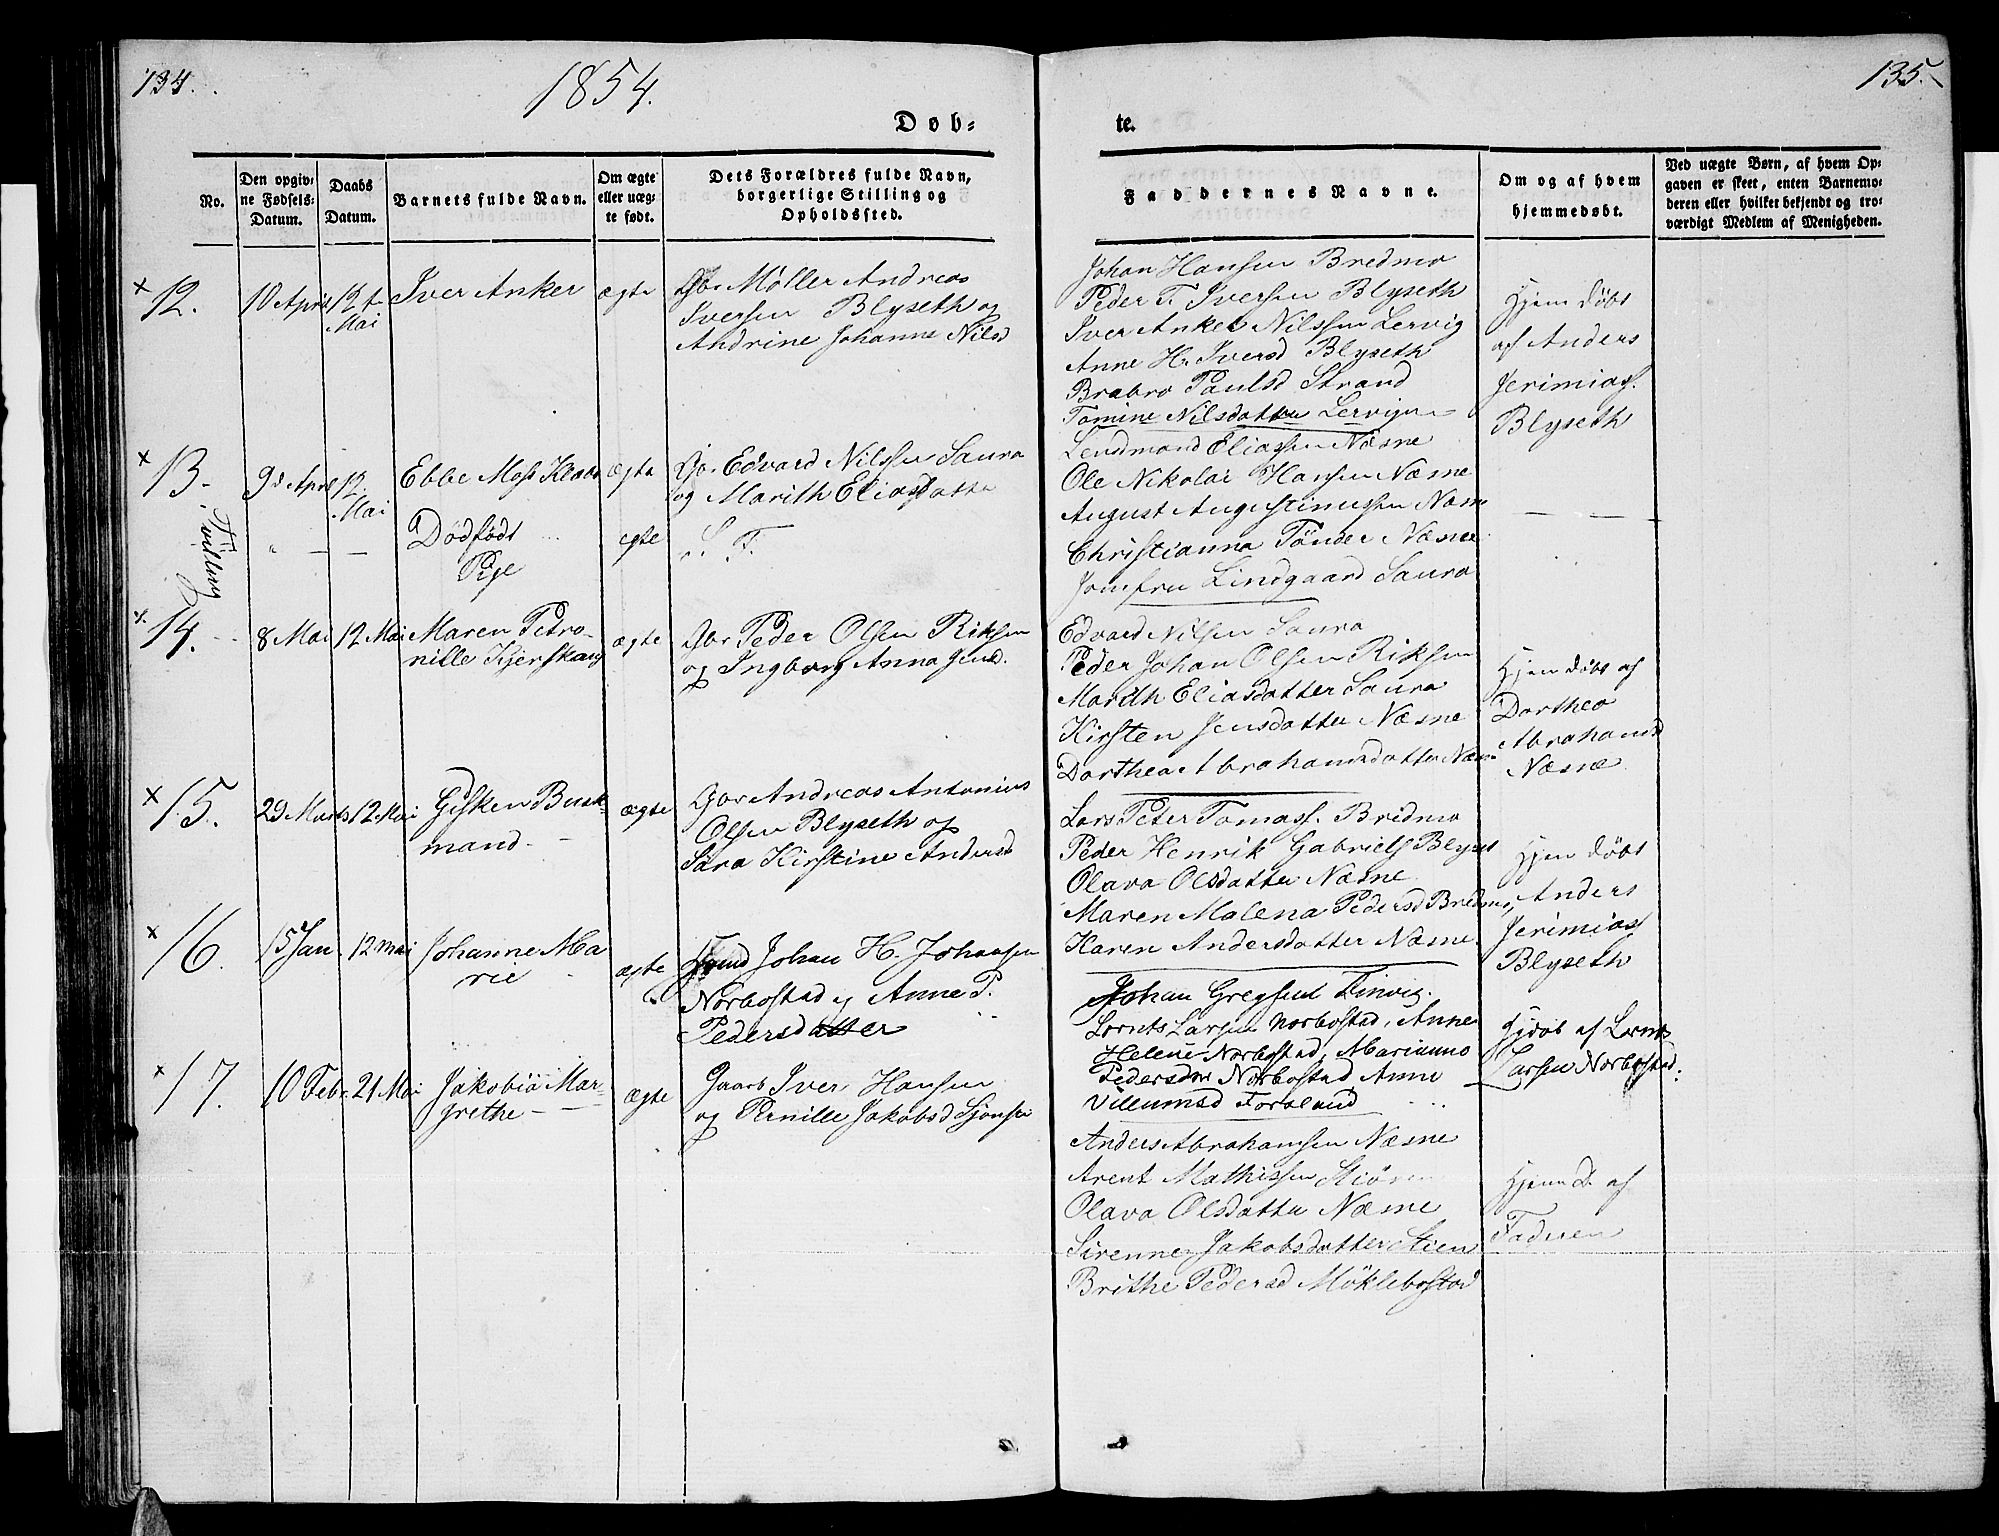 134.
1854.
Døb-
No.
Den opgiv-
ne Fødsels-
Datum.
Daabs
Datum.
Barnets fulde Navn.
Om ægte
eller uæg-
te født.
Dets Forældres fulde Navn,
borgerlige Stilling og
Opholdssted.
12.
10 April
12te
Mai
Iver Anker
ægte
Gbr Møller Andreas
Iversen Blyseth og
Andrine Johanne Nilsd
13.
9d April
12
Mai
Ebbe Moss
ægte
Gbr Edvard Nilssen Saura
og Marith Eliasdatte
Tvilling
" — —
Dødfødt
Pige
ægte
S. F.
14.
8 Mai
12 Mai
Maren Petro-
nille Kjerskaug
ægte
Gbr Peder Olsen Riksen
og Ingborg Anna Jensd.
15.
29 Marts
12 Mai
Gisken Busk-
mand -
ægte
Gbr Andreas Antonius
Olsen Blyseth og
Sara Kirstine Andersd
16.
15 Jan
12 mai
Johanne Ma
rie
ægte
Johan H. Johansen
Norbostad og Anne P.
Pedersdatter
17.
10 Febr.
21 Mai
Jakobia Mar-
grethe —
ægte
Gaarb Iver Hansen
og Pernille Jakobsd Sjonsen
135.
te.
Faddernes Navne.
Om og af hvem
hjemmedøbt.
Ved uægte Børn, af hvem Op-
gaven er skeet, enten Barnemo-
deren eller hvilket bekjendt og tro-
værdigt Medlem af Menigheden.
Johan Hansen Bredmo
Peder T. Iversen Blyseth
Iver Anker Nilssen Lervig
Anne H. Iversd Blyseth
Brabro Paulsd Strand
Tomine Nilsdatter Lervigen
Hjem døbt
af Anders
Jerimias.
Blyseth
Lendmand Eliassen Næsne
Ole Nikolai Hansen Næsne
August Augustinussen Næsn
Christianna Tønder Næsne
Jomfru Lindgaard Saura
— — —
Edvard Nilsen Saura
Peder Johan Olsen Riksen
Marith Eliasdatter Saura
Kirsten Jensdatter Næsne
Dorthea Abrahamsdatter Næsn
Hjem døbt af
Dorthea
Abrahamsd
Næsne
Lars Peter Tomass. Bredmo
Peder Henrik Gabriels Blyset
Olava Olsdatter Næsne
Maren Malena Pedersd Bredmo,
Karen Andersdatter Næsne
Hjem døbt
Anders
Jerimias
Blyseth
Johan
Lornts Larsen Norbostad, Anne
Helene Norbostad, Marianna
Pedersdttr Norbostad, Anne
Villumsd Forsland
Hjdøb af Lornts
Larsen Norbostad.
Anders Abrahamsen Næsne
Arent Mathissen
Olava Olsdatter Næsne
Sirenne Jakobsdatter Stien
Brithe Pedersd Møklebostad
Hjem D. af
Faderen